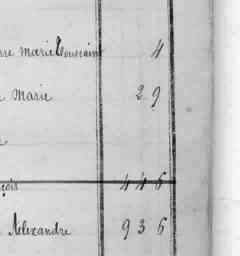 marie Toussaint 4
Marie 29
çois 446
Alexandre 936